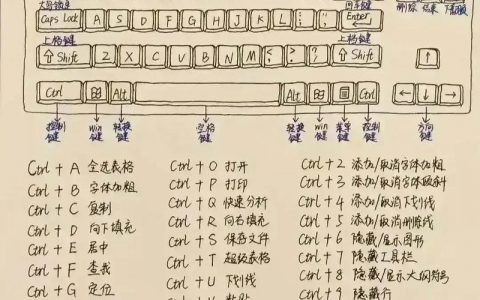 大小锁定 回车键 删除 结束 下翻
Caps Lock A S D F G H J K L Enter
上档键 上档键
Shift Z X C V B N M < , > . ? / Shift ↑
Ctrl Alt Alt Ctrl ← ↓ →
控制键 win键 转换键 空格键 转换键 win键 菜单键 控制键 方向键
Ctrl + A 全选表格 Ctrl + O 打开 Ctrl + 2 添加/取消字体加粗
Ctrl + B 字体加粗 Ctrl + P 打印 Ctrl + 3 添加/取消字体倾斜
Ctrl + C 复制 Ctrl + Q 快速分析 Ctrl + 4 添加/取消下划线
Ctrl + D 向下填充 Ctrl + R 向右填充 Ctrl + 5 添加/取消删除线
Ctrl + E 居中 Ctrl + S 保存文件 Ctrl + 6 隐藏/显示图形
Ctrl + F 查找 Ctrl + T 超级表格 Ctrl + 7 隐藏工具栏
Ctrl + G 定位 Ctrl + U 下划线 Ctrl + 8 隐藏/显示大纲符号
Ctrl + 9 隐藏行